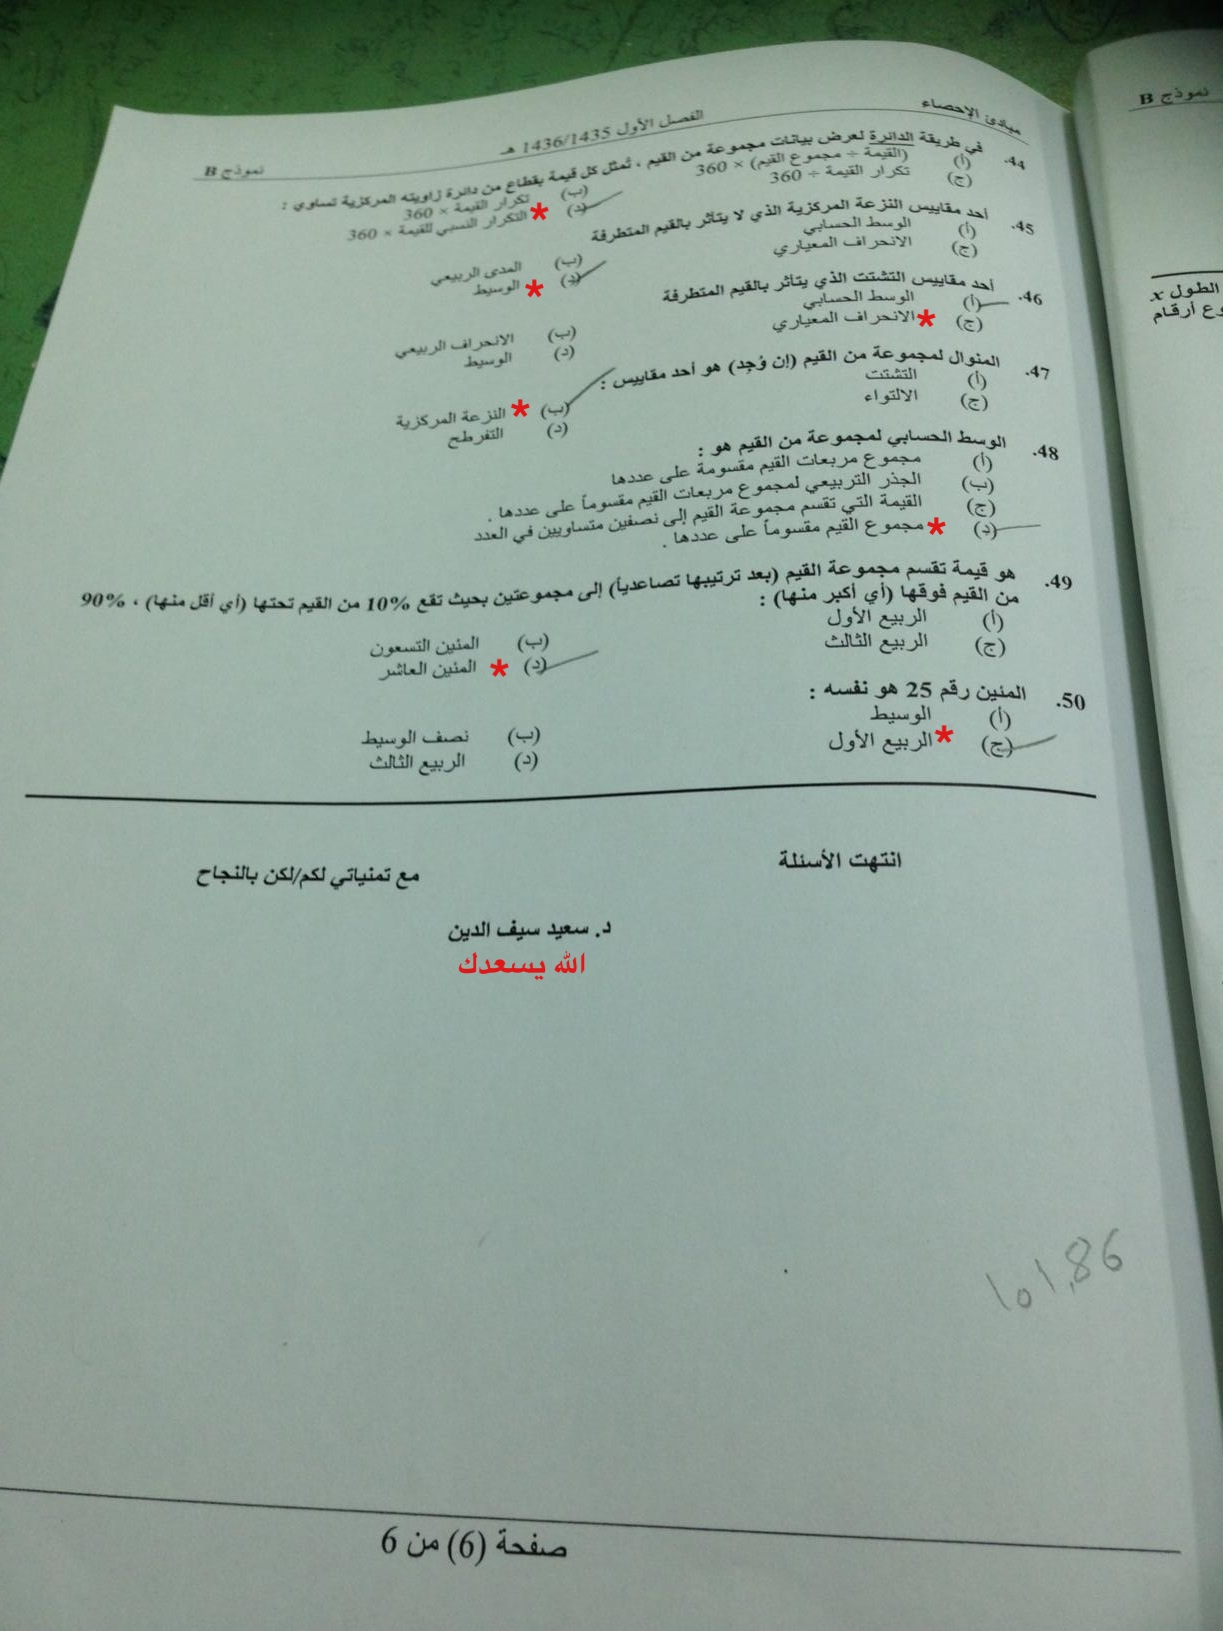 مبادئ الإحصاء
الفصل الأول 1436/1435 هـ
نموذج B
44. في طريقة الدائرة لعرض بيانات مجموعة من القيم ، تُمثل كل قيمة بقطاع من دائرة زاويته المركزية تساوي :
(أ) (القيمة ÷ مجموع القيم) × 360
(ب) تكرار القيمة × 360
(ج) تكرار القيمة ÷ 360
(د) * التكرار النسبي للقيمة × 360
45. أحد مقاييس النزعة المركزية الذي لا يتأثر بالقيم المتطرفة
(أ) الوسط الحسابي
(ب) المدى الربيعي
(ج) الانحراف المعياري
(د) * الوسيط
46. أحد مقاييس التشتت الذي يتأثر بالقيم المتطرفة
(أ) الوسط الحسابي
(ب) الانحراف الربيعي
(ج) * الانحراف المعياري
(د) الوسيط
47. المنوال لمجموعة من القيم (إن وُجد) هو أحد مقاييس :
(أ) التشتت
(ب) * النزعة المركزية
(ج) الالتواء
(د) التفرطح
48. الوسط الحسابي لمجموعة من القيم هو :
(أ) مجموع مربعات القيم مقسومة على عددها
(ب) الجذر التربيعي لمجموع مربعات القيم مقسوماً على عددها .
(ج) القيمة التي تقسم مجموعة القيم إلى نصفين متساويين في العدد
(د) * مجموع القيم مقسوماً على عددها .
49. هو قيمة تقسم مجموعة القيم (بعد ترتيبها تصاعدياً) إلى مجموعتين بحيث تقع 10% من القيم تحتها (أي أقل منها) ، 90%
من القيم فوقها (أي أكبر منها) :
(أ) الربيع الأول
(ب) المئين التسعون
(ج) الربيع الثالث
(د) * المئين العاشر
50. المئين رقم 25 هو نفسه :
(أ) الوسيط
(ب) نصف الوسيط
(ج) * الربيع الأول
(د) الربيع الثالث
انتهت الأسئلة
مع تمنياتي لكم/لكن بالنجاح
د. سعيد سيف الدين
الله يسعدك
101,86
صفحة (6) من 6
نموذج B
الطول x